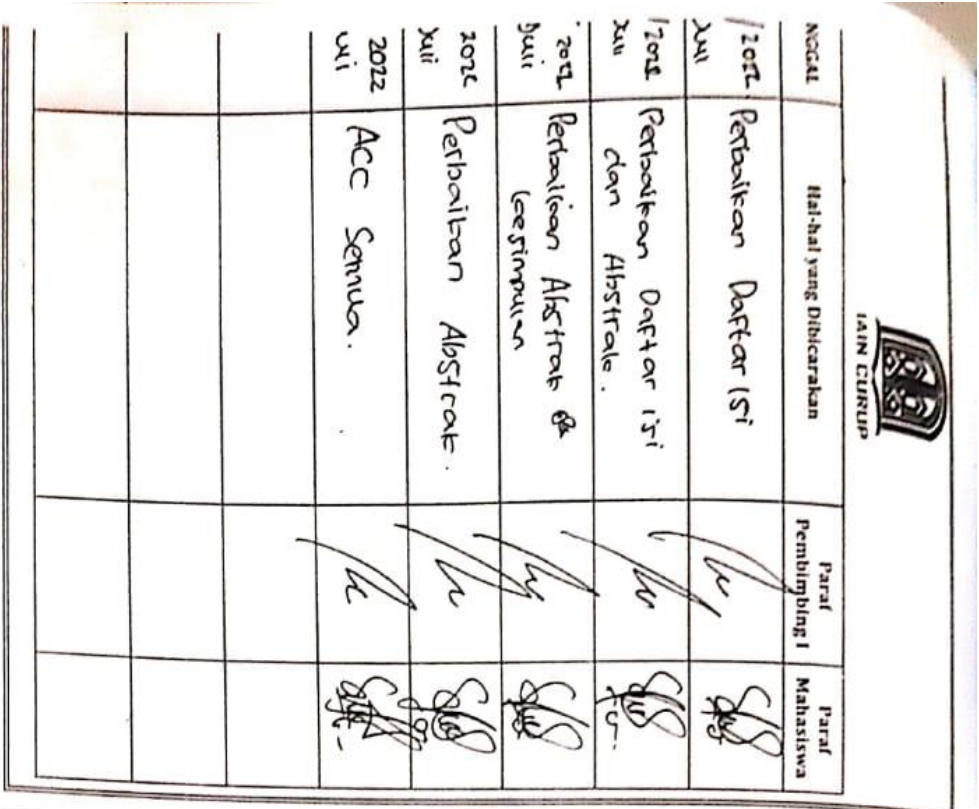 IAIN CURUP
NGGAL
Hal-hal yang Dibicarakan
Paraf
Pembimbing I
Paraf
Mahasiswa
/2022
Perbaikan Daftar isi
Juli
Perbaikan Daftar isi
Juli
dan Abstrak.
Perbaikan Abstrak &
Juli
kesimpulan
Perbaikan Abstrak.
Juli
2022
ACC Semua.